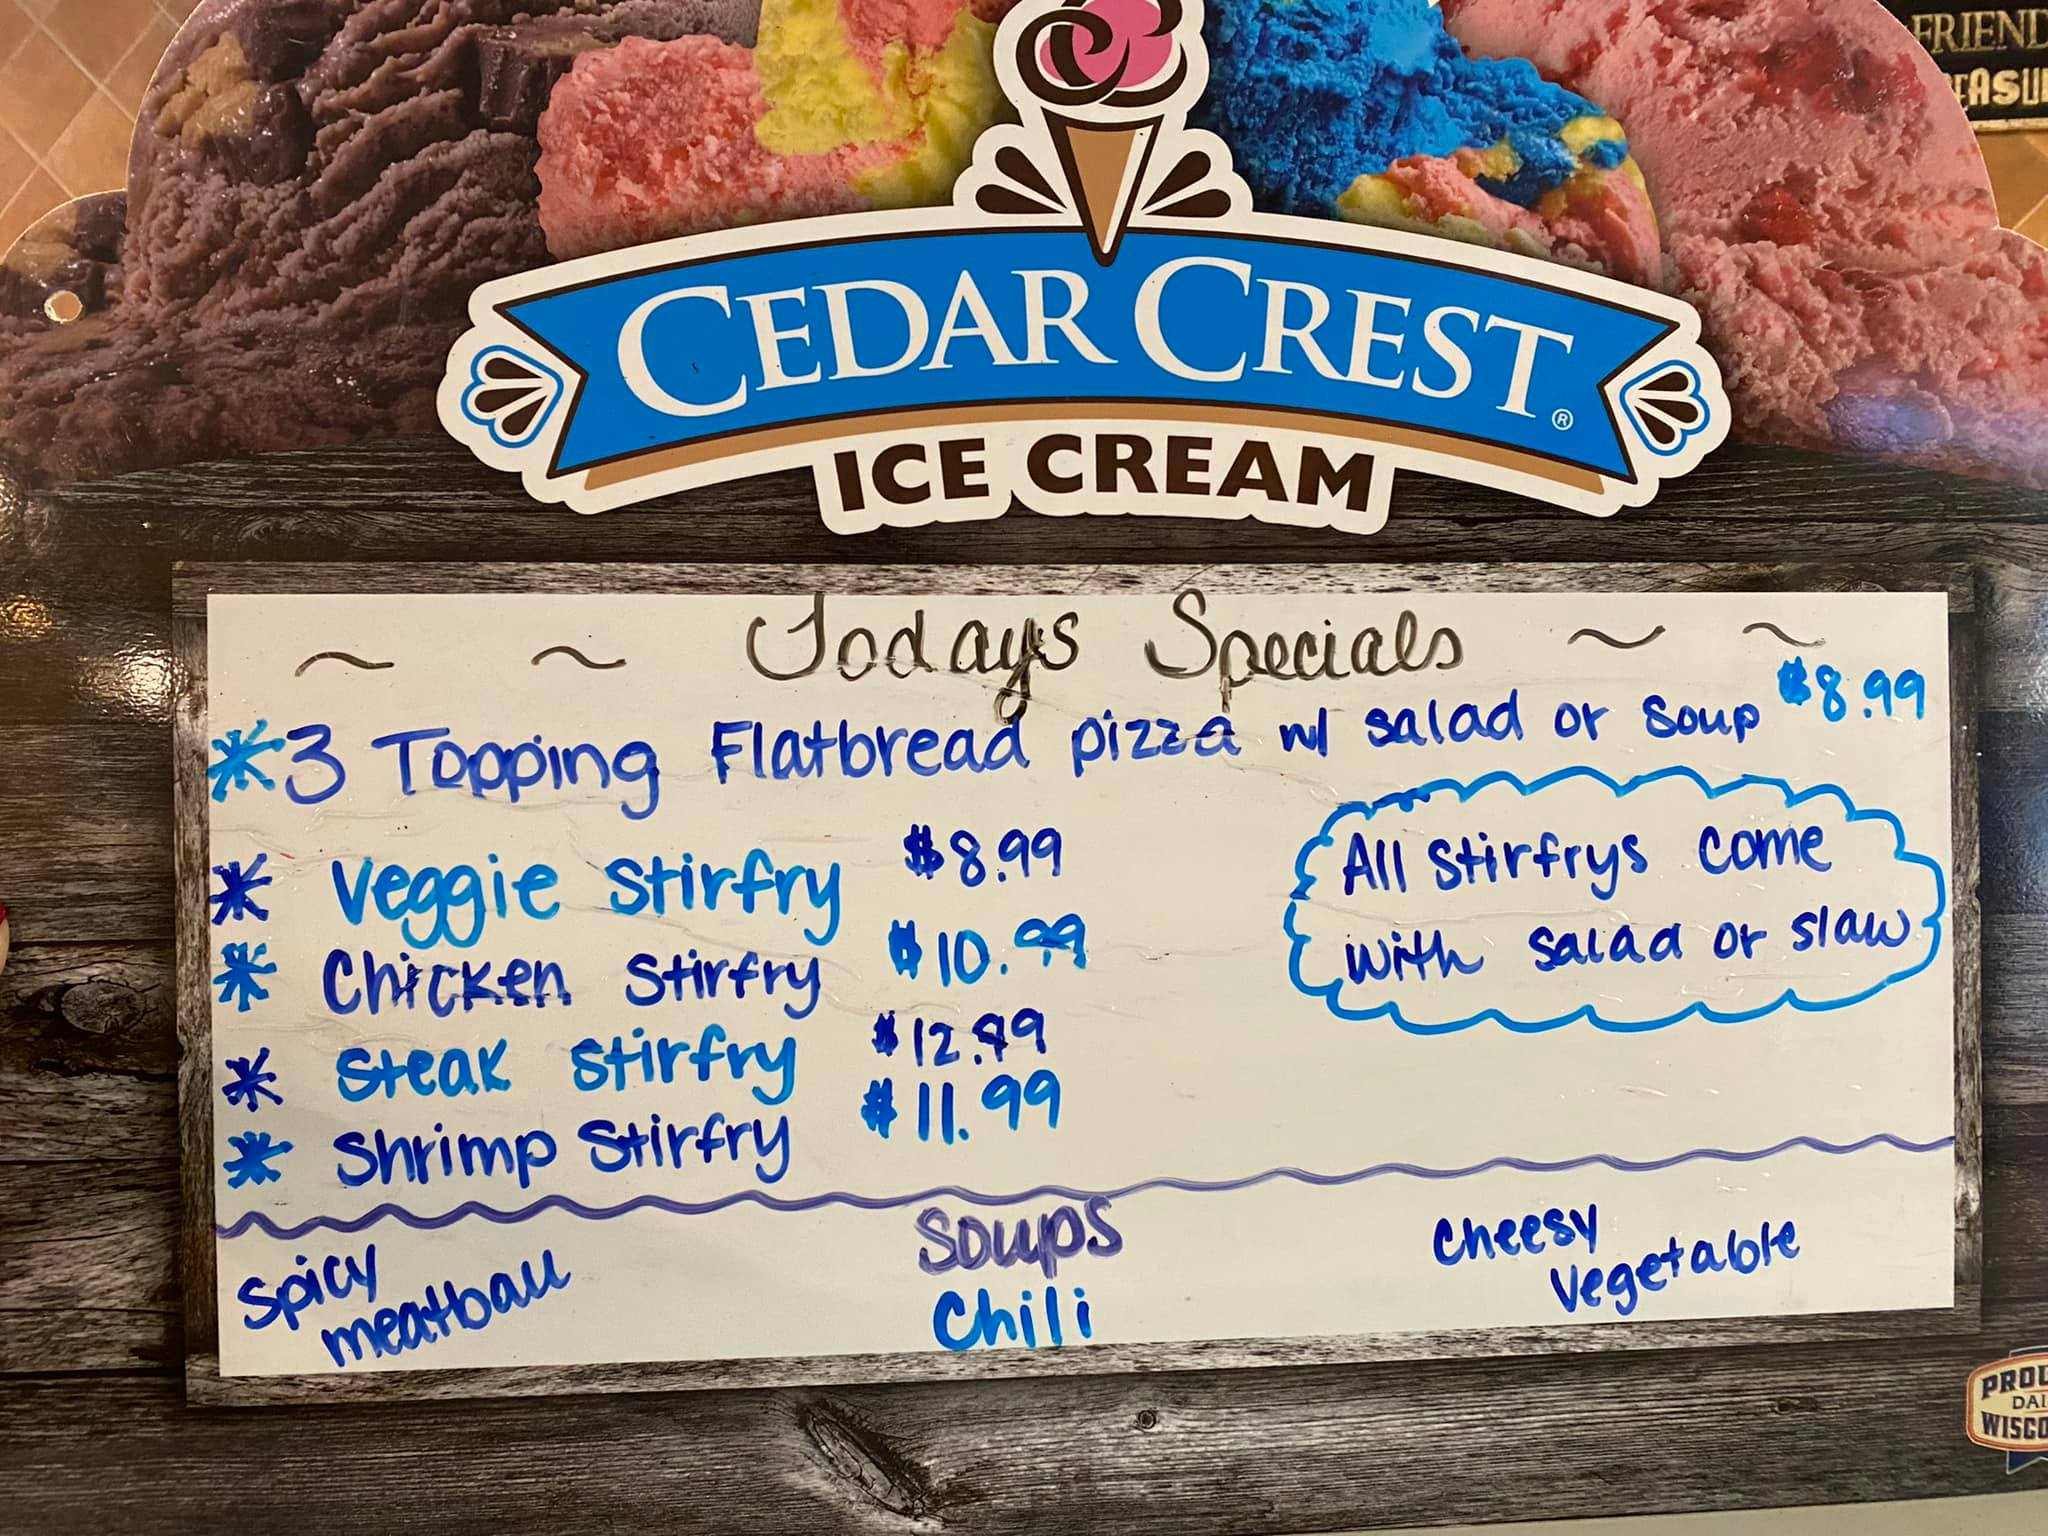 FRIEND
EASU
CEDAR CREST®
ICE CREAM
~ ~ Todays Specials ~ ~
*3 Topping Flatbread pizza w/ salad or soup $8.99
* Veggie Stirfry $8.99
* Chicken Stirfry $10.99
* Steak Stirfry $12.99
* Shrimp Stirfry $11.99
All Stirfrys come
with salad or slaw
Soups
Spicy
meatball
Chili
Cheesy
Vegetable
PROU
DAI
WISCO